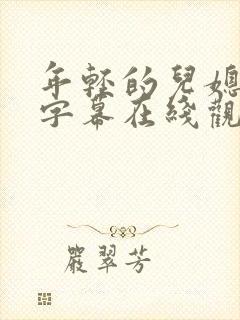 年轻的兒媳
字幕在线觀
嚴翠芳